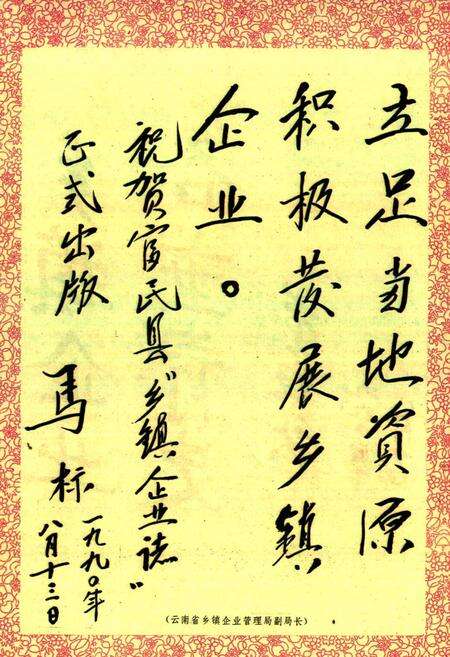 立足当地資原
积极发展乡镇
企业。
祝贺富民县“乡镇企业誌”
正式出版
马标
一九九〇年
八月十三日
(云南省乡镇企业管理局副局长)